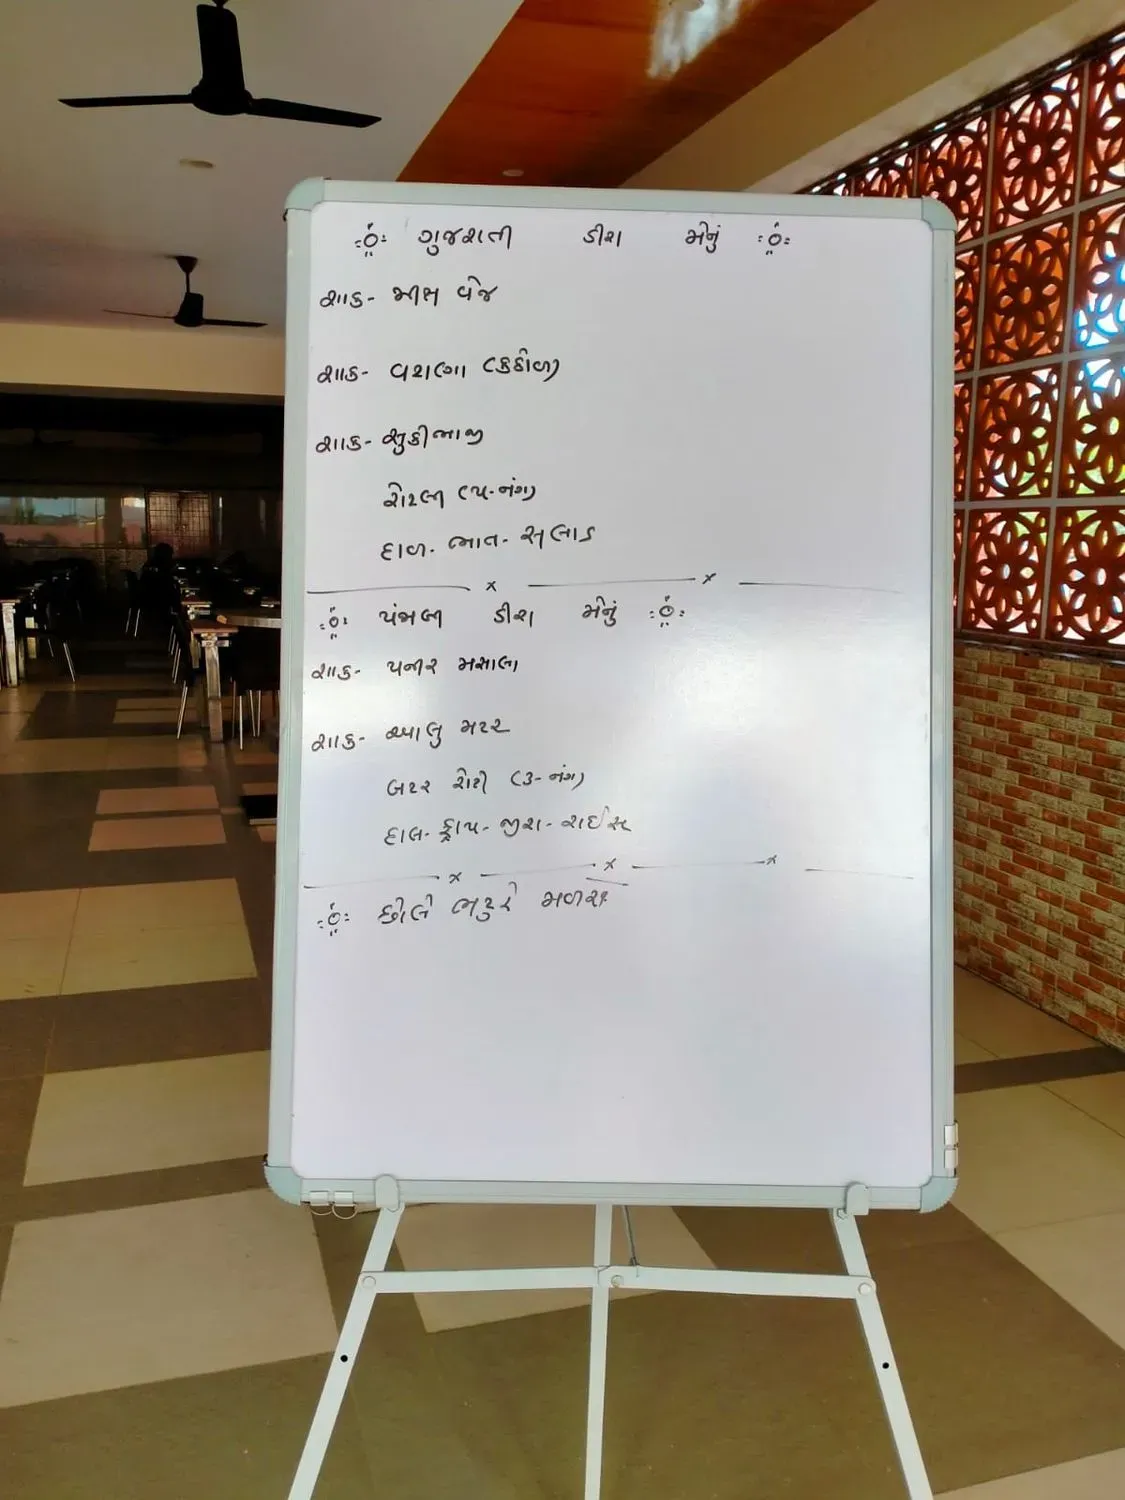 ગુજરાતી ડીશ મેનું
શાક- મીક્ષ વેજ
શાક- વટાણા (કઠોળ)
શાક- સુકીભાજી
રોટલી (૫-નંગ)
દાળ- ભાત- સલાડ
પંજાબી ડીશ મેનું
શાક- પનીર મસાલા
શાક- આલુ મટર
બટર રોટી (૩-નંગ)
દાલ- ફ્રાય- જીરા- રાઈસ
છોલે ભટુરે મળશે